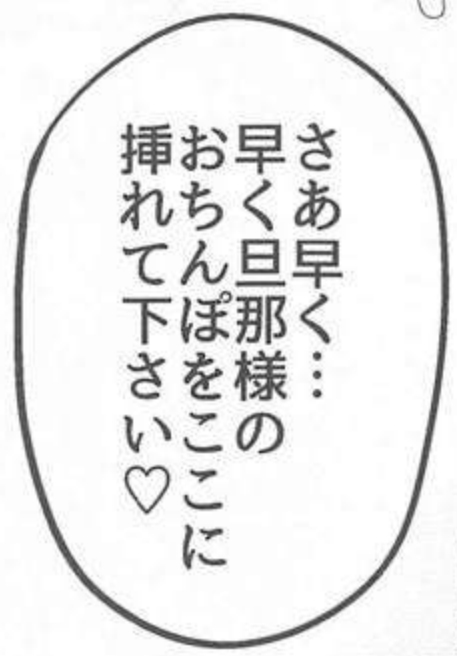 さあ早く…
早く旦那様の
おちんぽをここに
挿れて下さい♡